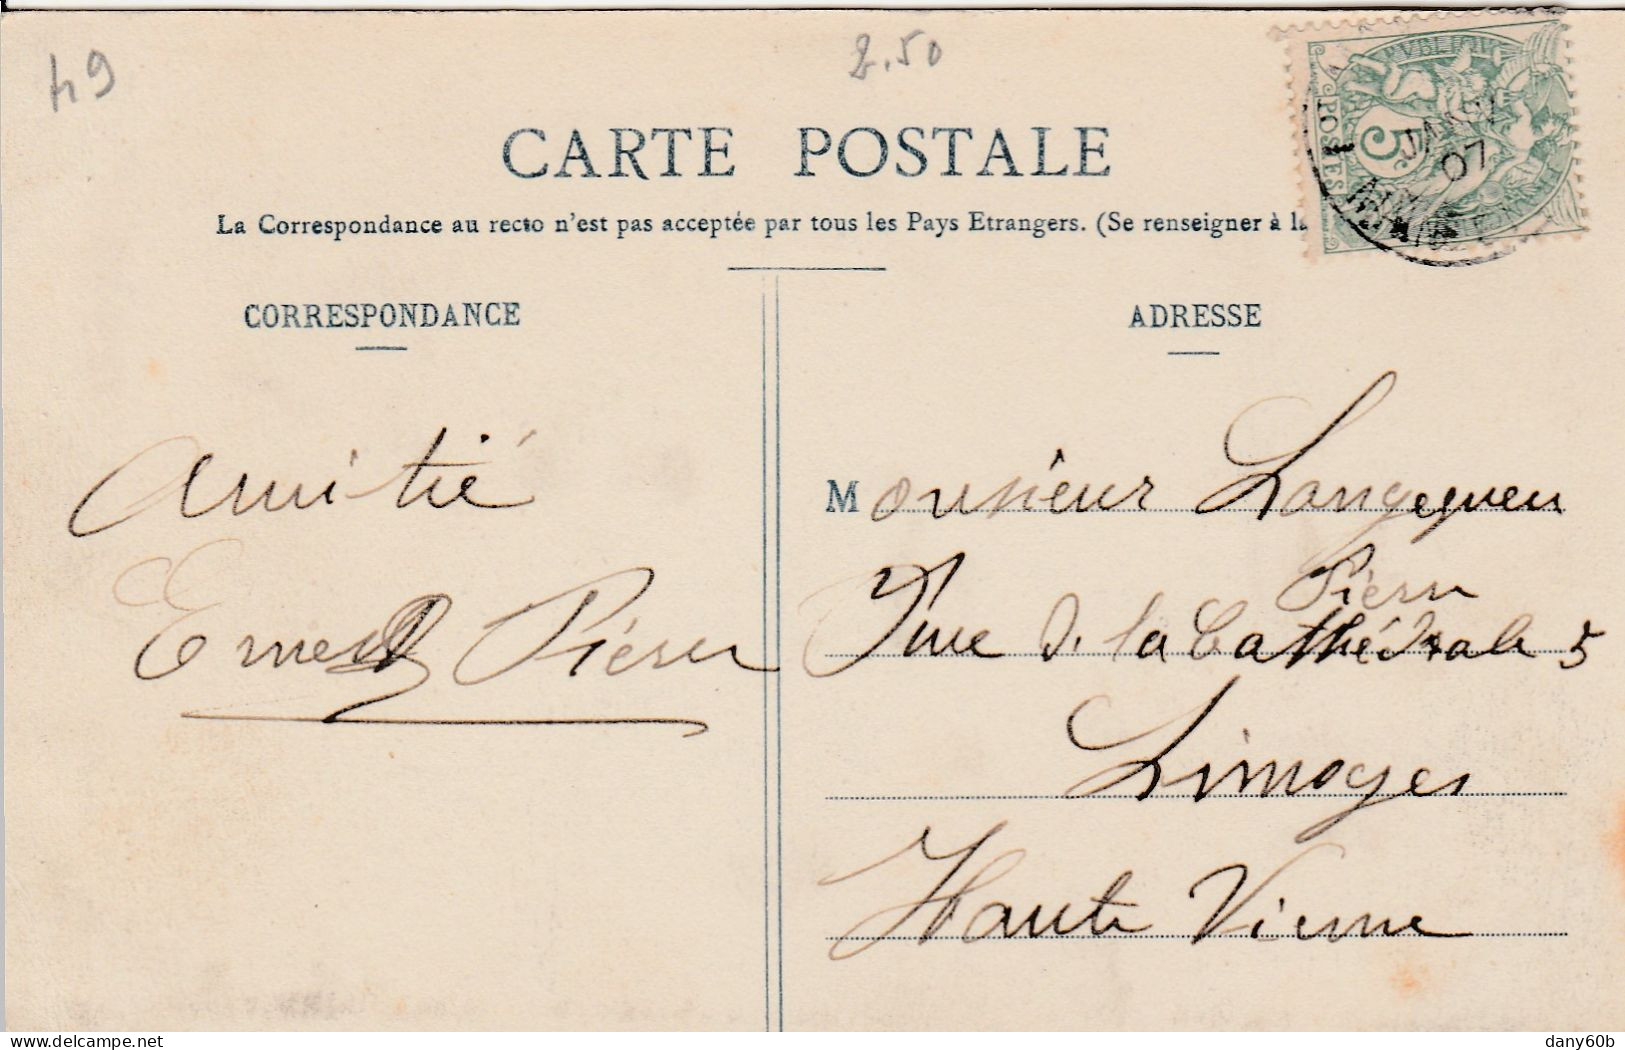 49
2.50
CARTE POSTALE
La Correspondance au recto n'est pas acceptée par tous les Pays Etrangers. (Se renseigner à la
RÉPUBLIQUE
POSTES
5
JANV
07
CORRESPONDANCE
ADRESSE
Amitié
Ernest
Monsieur
Rue de la Cathédrale 5
Limoges
Haute Vienne
delcampe.net
dany60b